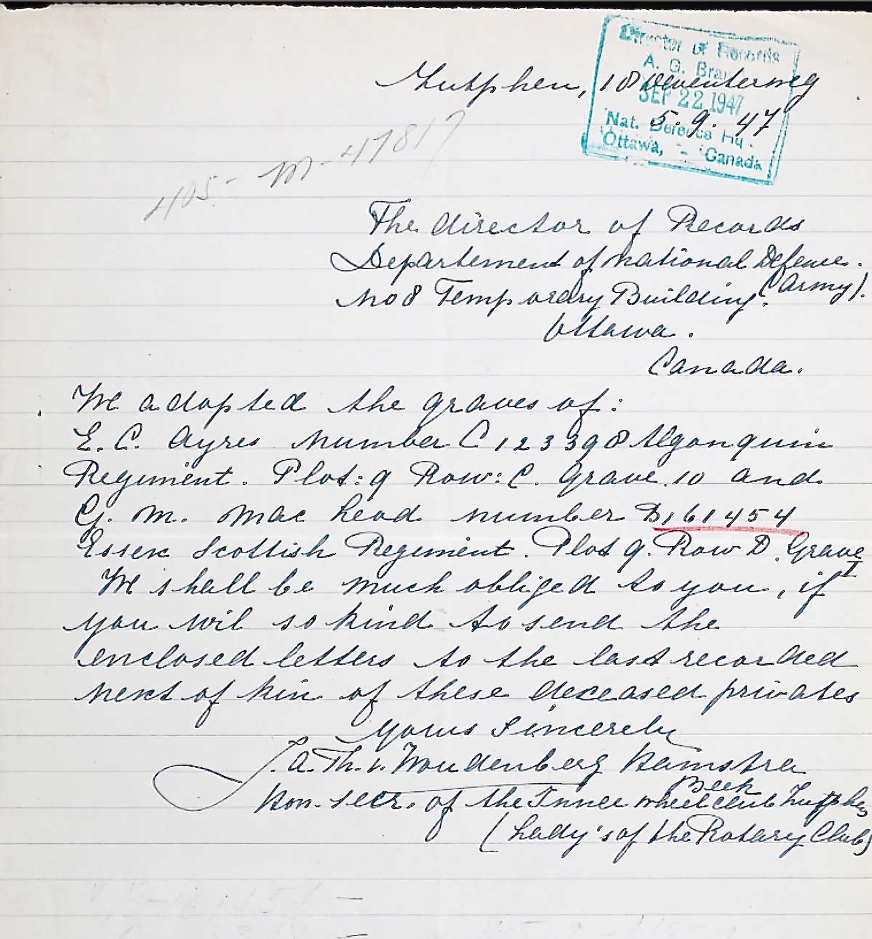 Director of Records
A. G. Branch
SEP 22 1947
Nat. Defence Hq.
Ottawa, - Canada
Zutphen, 18 Deventerweg
5.9.47
405-M-47817
The director of Records
Departement of national Defence.
(Army).
No 8 Temporary Building.
Ottawa.
Canada.
We adopted the graves of:
E. C. Ayres number C 123398 Algonquin
Regiment. Plot: 9 Row: C. Grave 10 and
G. M. Mac Leod number D161454
Essex Scottish Regiment. Plot 9. Row D. Grave
I
We shall be much obliged to you, if
you wil so kind to send the
enclosed letters to the last recorded
next of kin of these deceased privates
Yours Sincerely
J. A. Th. v. Woudenberg Hamstra
Beek
Hon. Secr. of the Inner wheel club Zutphen
(Lady's of the Rotary Club)